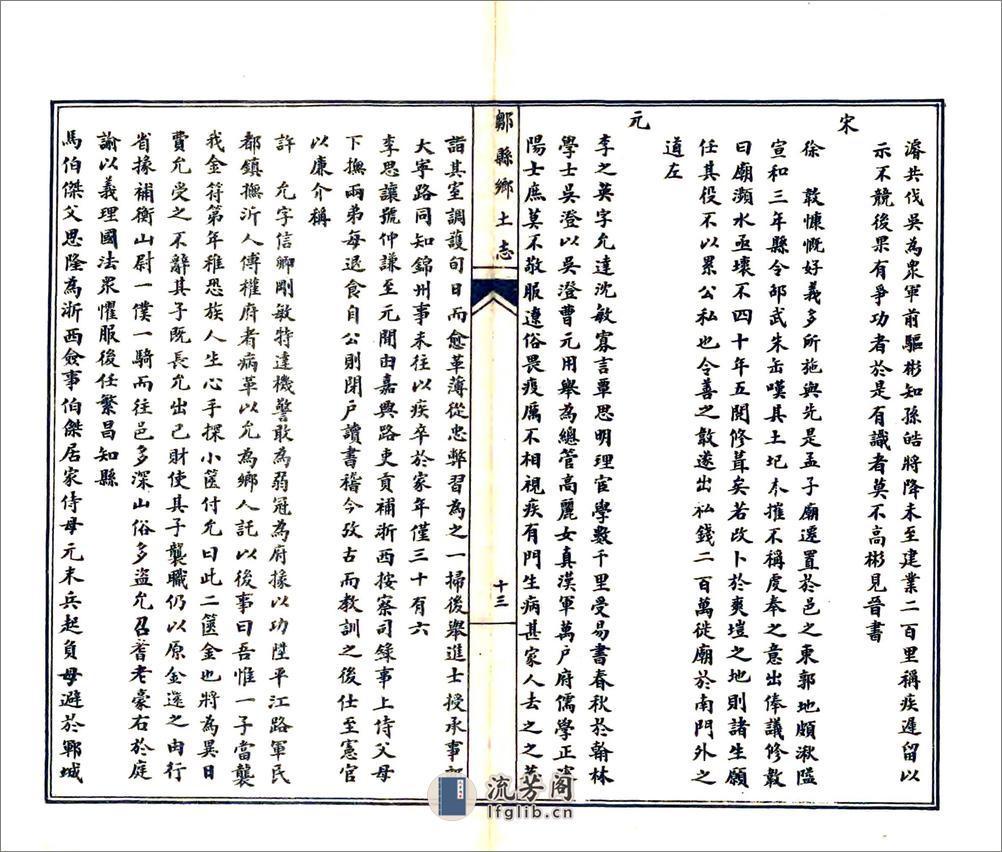 濬共伐吳為眾軍前驅彬知孫皓將降未至建業二百里稱疾遲留以
示不競後果有爭功者於是有識者莫不高彬見晉書
宋
徐 敦慷慨好義多所施與先是孟子廟遷置於邑之東郭地頗湫隘
宣和三年縣令邵武朱缶嘆其土圮木摧不稱虔奉之意出俸議修敦
曰廟瀕水亟壞不四十年五閱修葺矣若改卜於爽塏之地則諸生願
任其役不以累公私也令善之敦遂出私錢二百萬徙廟於南門外之
道左
元
李之英字允達沈敏寡言覃思明理宦學數千里受易書春秋於翰林
學士吳澄以吳澄曹元用舉為總管高麗女真漢軍萬户府儒學正
陽士庶莫不敬服遼俗畏疫厲不相視疾有門生病甚家人去之之英
鄒縣鄉土志
十三
詣其室調護旬日而愈革薄從忠弊習為之一掃後舉進士授承事郎
大寧路同知錦州事未往以疾卒於家年僅三十有六
李思讓號仲謙至元閒由嘉興路吏貢補浙西按察司錄事上侍父母
下撫兩弟每退食自公則閉户讀書稽今攷古而教訓之後仕至憲官
以廉介稱
許 允字信卿剛敏特達機警敢為弱冠為府掾以功陞平江路軍民
都鎮撫沂人傅權府者病革以允為鄉人託以後事曰吾惟一子當襲
我金符第年稚恐族人生心手探小篋付允曰此二篋金也將為異日
費允受之不辭其子既長允出己財使其子襲職仍以原金還之由行
省掾補衡山尉一僕一騎而往邑多深山俗多盜允召耆老豪右於庭
諭以義理國法眾懼服後任繁昌知縣
馬伯傑父思隆為浙西僉事伯傑居家侍母元末兵起負母避於鄆城
流芳阁
lfglib.cn